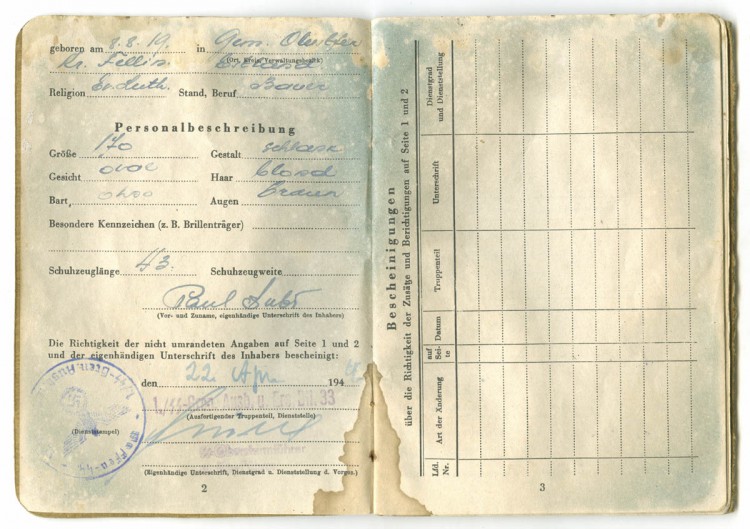 geboren am 8.8.19. in Gem.
Kr. Fellin (Ort, Kreis, Verwaltungsbezirk)
Religion Ev. Luth. Stand, Beruf Bauer
Personalbeschreibung
Größe 170 Gestalt schlank
Gesicht oval Haar blond
Bart ohne Augen braun
Besondere Kennzeichen (z. B. Brillenträger)
Schuhzeuglänge 43. Schuhzeugweite
Paul
(Vor- und Zuname, eigenhändige Unterschrift des Inhabers)
Die Richtigkeit der nicht umrandeten Angaben auf Seite 1 und 2
und der eigenhändigen Unterschrift des Inhabers bescheinigt:
den 22. 194
(Ausfertigender Truppenteil, Dienststelle)
(Dienststempel)
Waffen-SS
(Eigenhändige Unterschrift, Dienstgrad u. Dienststellung d. Vorges.)
2
Bescheinigungen
über die Richtigkeit der Zusätze und Berichtigungen auf Seite 1 und 2
Lfd. Nr.
Art der Änderung
auf Sei-
te
Datum
Truppenteil
Unterschrift
Dienstgrad
und Dienststellung
3